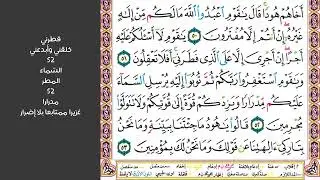 أَخَاهُمْ هُودًا قَالَ يَـٰقَوْمِ ٱعْبُدُوا۟ ٱللَّهَ مَا لَكُم مِّنْ إِلَـٰهٍ
غَيْرُهُۥٓ إِنْ أَنتُمْ إِلَّا مُفْتَرُونَ ٥٠ يَـٰقَوْمِ لَآ أَسْـَٔلُكُمْ عَلَيْهِ
أَجْرًا إِنْ أَجْرِىَ إِلَّا عَلَى ٱلَّذِى فَطَرَنِىٓ أَفَلَا تَعْقِلُونَ ٥١
وَيَـٰقَوْمِ ٱسْتَغْفِرُوا۟ رَبَّكُمْ ثُمَّ تُوبُوٓا۟ إِلَيْهِ يُرْسِلِ ٱلسَّمَآءَ
عَلَيْكُم مِّدْرَارًا وَيَزِدْكُمْ قُوَّةً إِلَىٰ قُوَّتِكُمْ وَلَا تَتَوَلَّوْا۟
مُجْرِمِينَ ٥٢ قَالُوا۟ يَـٰهُودُ مَا جِئْتَنَا بِبَيِّنَةٍ وَمَا نَحْنُ
بِتَارِكِىٓ ءَالِهَتِنَا عَن قَوْلِكَ وَمَا نَحْنُ لَكَ بِمُؤْمِنِينَ ٥٣
فطرني
خلقني وأبدعني
52
السماء
المطر
52
مدرارا
غزيرا متتابعا بلا إضرار